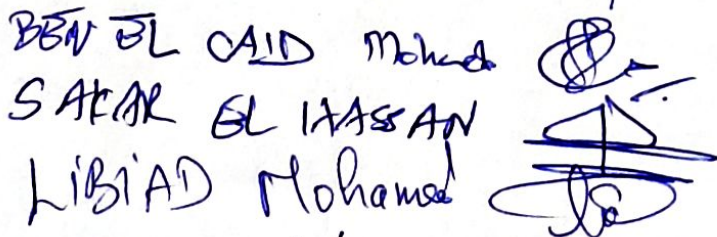 BEN EL CAID Mohamed
SAKAR EL HASSAN
LIBIAD Mohamed